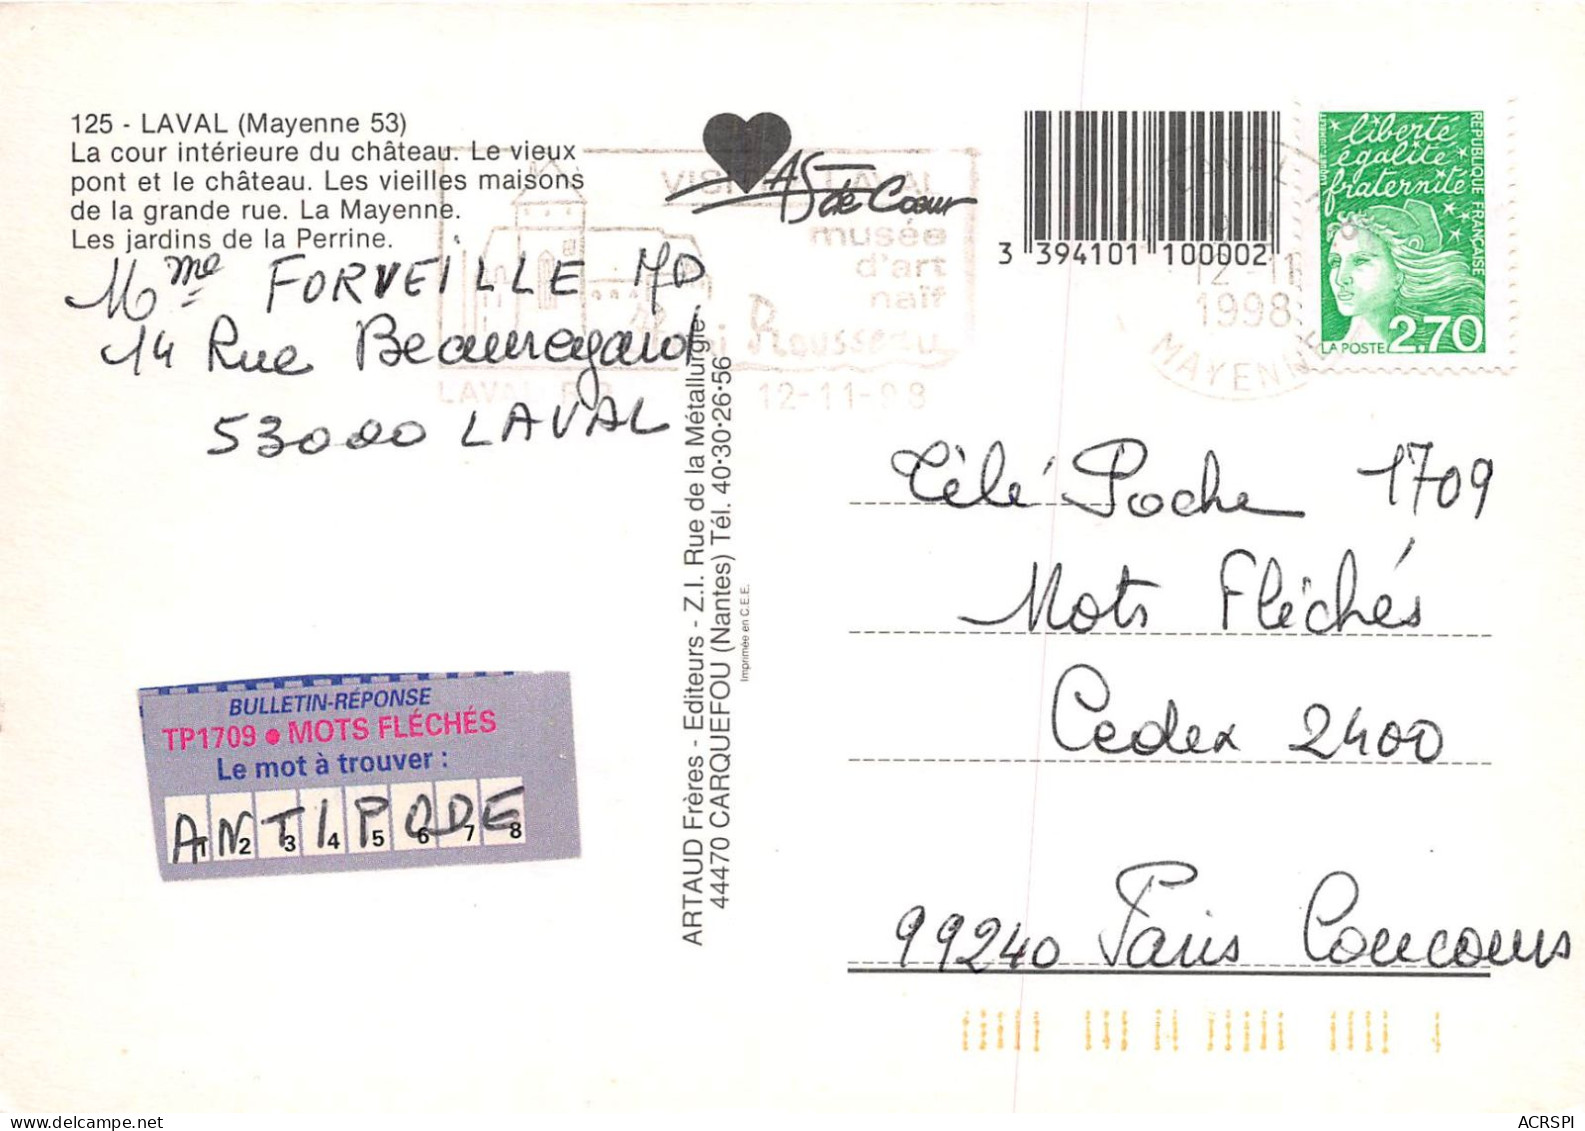 125 - LAVAL (Mayenne 53)
La cour intérieure du château. Le vieux
pont et le château. Les vieilles maisons
de la grande rue. La Mayenne.
Les jardins de la Perrine.
Mme FORVEILLE MD
14 Rue Beauregard
53000 LAVAL
BULLETIN-RÉPONSE
TP1709 • MOTS FLÉCHÉS
Le mot à trouver :
ANTIPODE
1 2 3 4 5 6 7 8
ARTAUD Frères - Editeurs - Z.I. Rue de la Métallurgie
44470 CARQUEFOU (Nantes) Tél. 40·30·26·56
Imprimée en C.E.E.
AS de Cœur
VISITEZ LAVAL
musée
d'art
naïf
Henri Rousseau
LAVAL R.P. 12-11-98
3 394101 100002
LAVAL
12-11
1998
MAYENNE
liberté
égalité
fraternité
RÉPUBLIQUE FRANÇAISE
LA POSTE 2,70
Télé Poche 1709
Mots Fléchés
Cedex 2400
99240 Paris Concours
ACRSPI